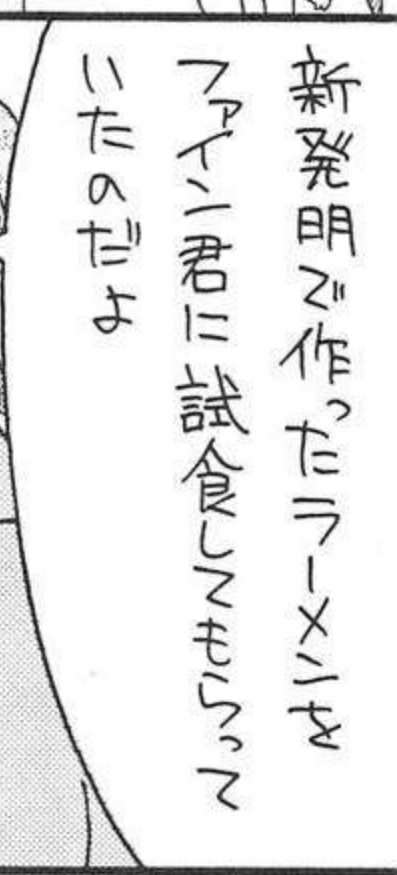 新発明で作ったラーメンを
ファイン君に試食してもらって
いたのだよ